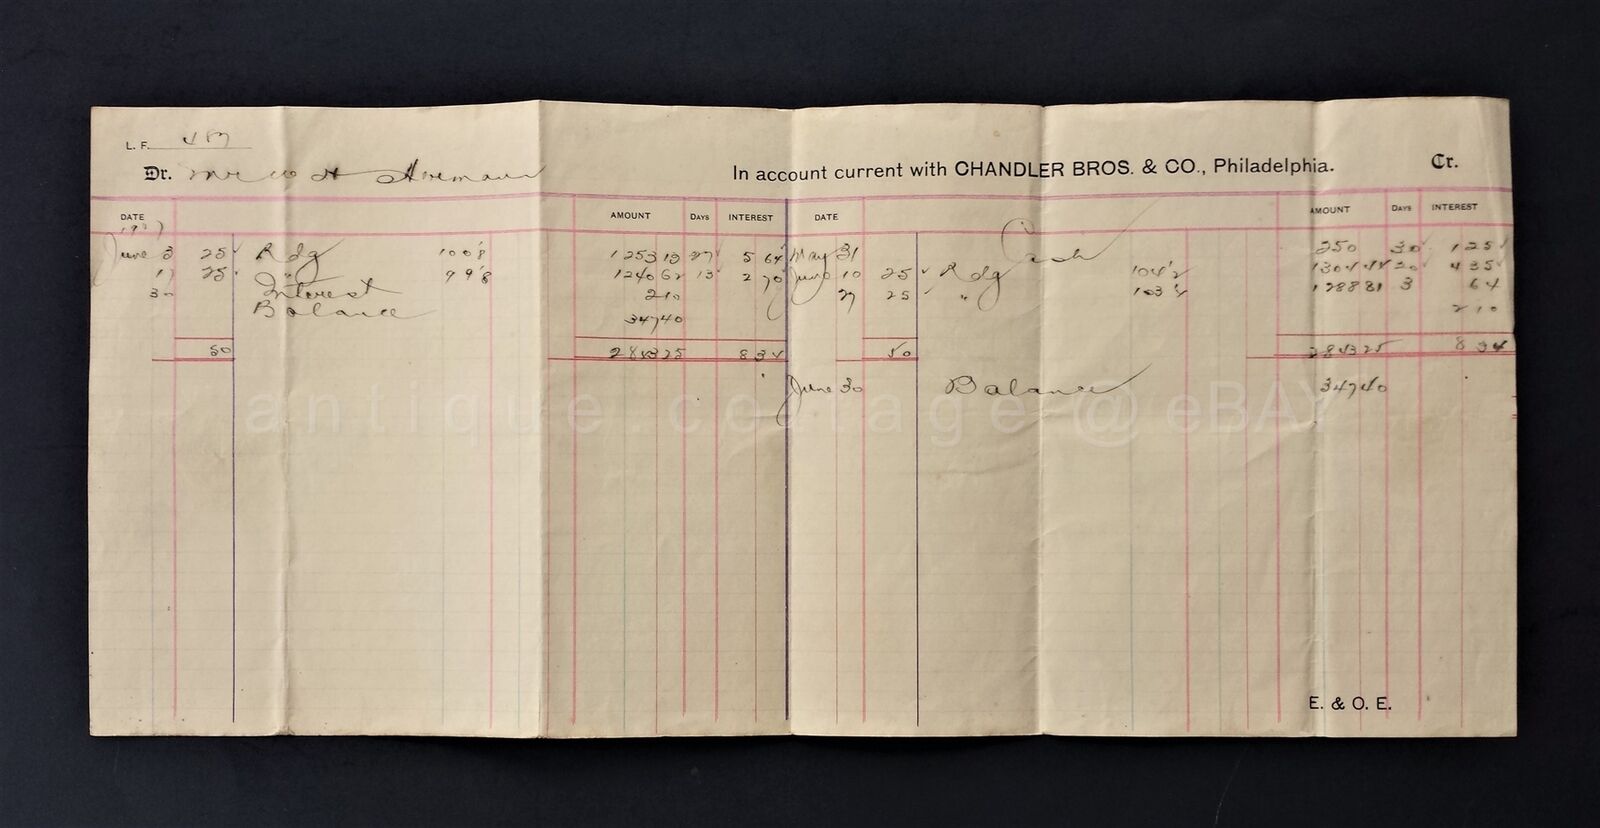 L. F. 487
Dr. In account current with CHANDLER BROS. & CO., Philadelphia. Cr.
DATE AMOUNT DAYS INTEREST DATE AMOUNT DAYS INTEREST
June 3 25 Rdg 100 5/8 1253 13 27 5 64 May 31 Cash 250 30 1 25
17 25 " 99 1/8 1240 62 13 2 70 June 10 25 Rdg 104 1/2 1304 44 20 4 35
30 Interest 2 10 27 25 " 103 1/4 1288 81 3 64
Balance 347 40 2 10
50 2843 25 8 34 50 2843 25 8 34
June 30 Balance 347 40
antique.cottage@eBAY
E. & O. E.